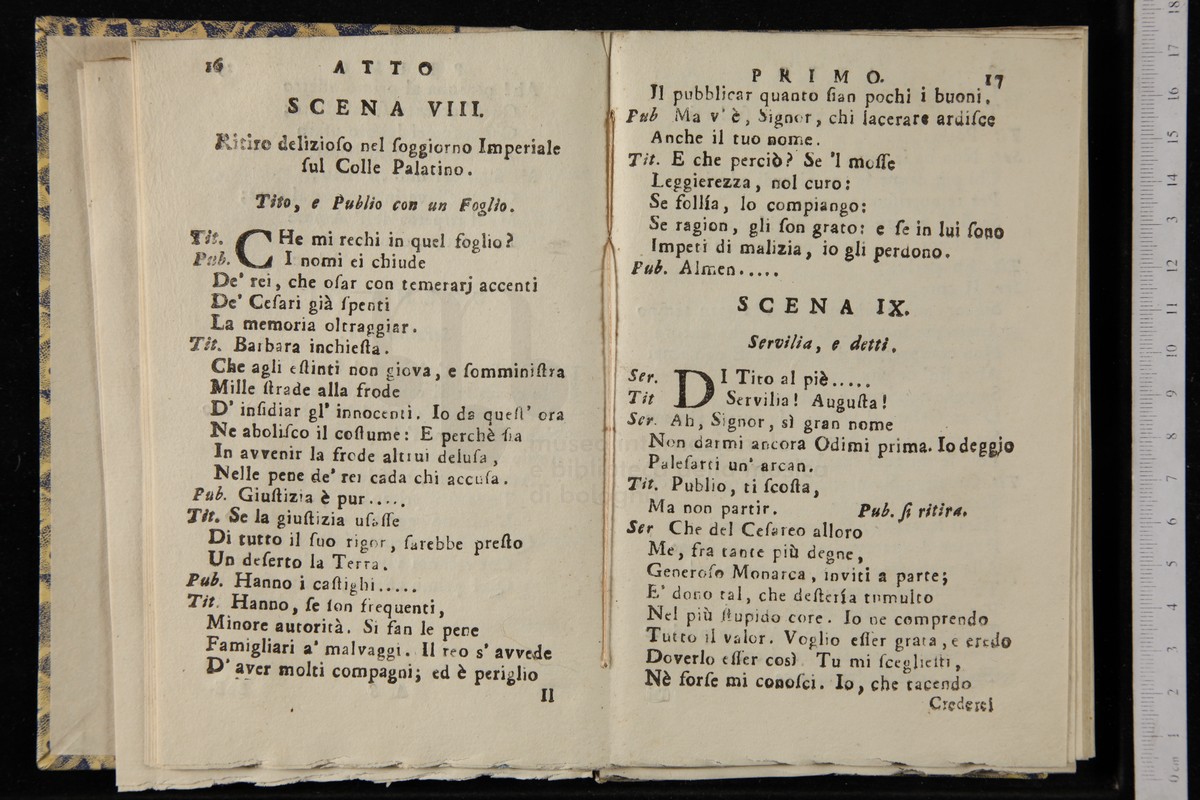 16 ATTO
SCENA VIII.
Ritiro delizioſo nel ſoggiorno Imperiale
ſul Colle Palatino.
Tito, e Publio con un Foglio.
Tit. CHe mi rechi in quel foglio?
Pub. I nomi ei chiude
De' rei, che oſar con temerarj accenti
De' Ceſari già ſpenti
La memoria oltraggiar.
Tit. Barbara inchieſta.
Che agli eſtinti non giova, e ſomminiſtra
Mille ſtrade alla frode
D' inſidiar gl' innocenti. Io da queſt' ora
Ne aboliſco il coſtume: E perchè ſia
In avvenir la frode altrui deluſa,
Nelle pene de' rei cada chi accuſa.
Pub. Giuſtizia è pur.....
Tit. Se la giuſtizia uſaſſe
Di tutto il ſuo rigor, ſarebbe preſto
Un deſerto la Terra.
Pub. Hanno i caſtighi.....
Tit. Hanno, ſe ſon frequenti,
Minore autorità. Si fan le pene
Famigliari a' malvaggi. Il reo s' avvede
D' aver molti compagni; ed è periglio
Il
PRIMO. 17
Il pubblicar quanto ſian pochi i buoni.
Pub Ma v' è, Signor, chi lacerare ardiſce
Anche il tuo nome.
Tit. E che perciò? Se 'l moſſe
Leggierezza, nol curo:
Se follía, lo compiango:
Se ragion, gli ſon grato: e ſe in lui ſono
Impeti di malizia, io gli perdono.
Pub. Almen.....
SCENA IX.
Servilia, e detti.
Ser. DI Tito al piè.....
Tit Servilia! Auguſta!
Ser. Ah, Signor, sì gran nome
Non darmi ancora Odimi prima. Io deggio
Paleſarti un' arcan.
Tit. Publio, ti ſcoſta,
Ma non partir. Pub. ſi ritira.
Ser Che del Ceſareo alloro
Me, fra tante più degne,
Generoſo Monarca, inviti a parte;
E' dono tal, che deſtería tumulto
Nel più ſtupido core. Io ne comprendo
Tutto il valor. Voglio eſſer grata, e credo
Doverlo eſſer così Tu mi ſceglieſti,
Nè forſe mi conoſci. Io, che tacendo
Crederei